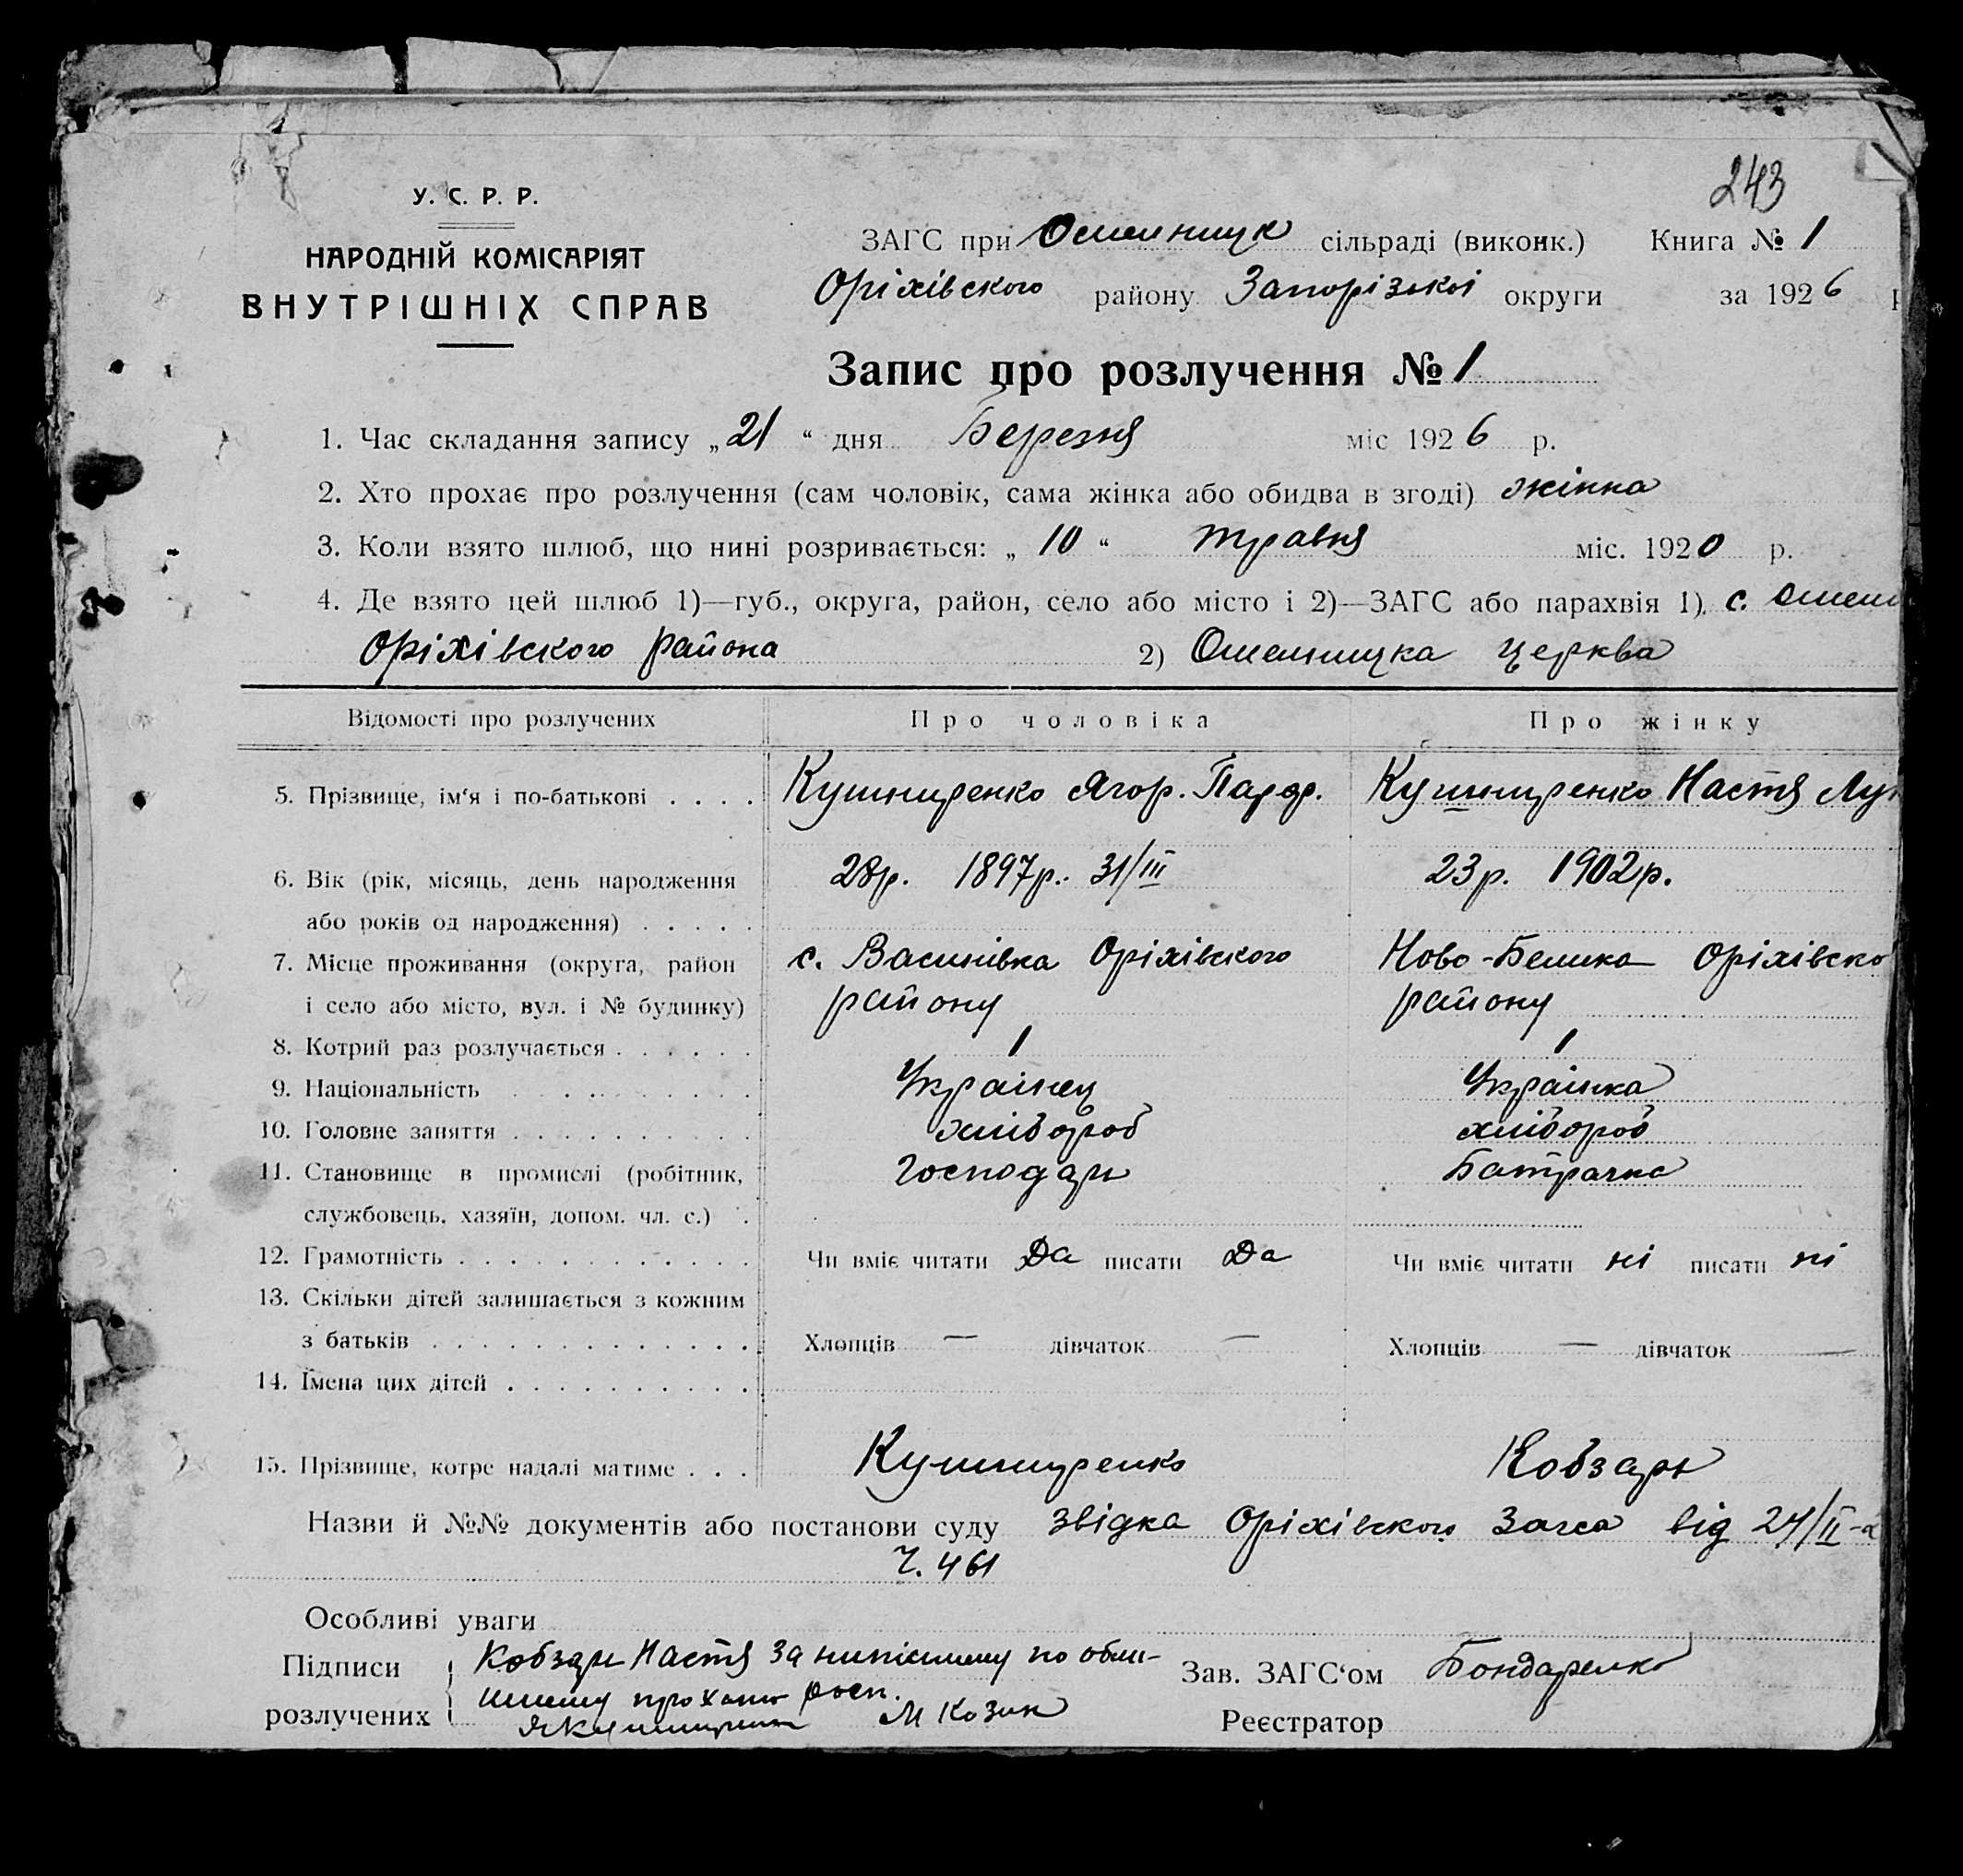 243
У. С. Р. Р.
НАРОДНІЙ КОМІСАРІЯТ
ВНУТРІШНІХ СПРАВ
ЗАГС при Омельницк сільраді (виконк.) Книга № 1
Оріхівского району Запорізької округи за 1926
Запис про розлучення № 1
1. Час складання запису „21“ дня Березня міс 1926 р.
2. Хто прохає про розлучення (сам чоловік, сама жінка або обидва в згоді) жінка
3. Коли взято шлюб, що нині розривається: „10“ травня міс. 1920 р.
4. Де взято цей шлюб 1)—губ., округа, район, село або місто і 2)—ЗАГС або парахвія 1) с. Омель
Оріхівского района 2) Омельницка церква
Відомості про розлучених Про чоловіка Про жінку
5. Прізвище, ім‘я і по-батькові . . . . Кушниренко Ягор. Парф. Кушниренко Настя Лук
6. Вік (рік, місяць, день народження 28р. 1897р. 31/III 23р. 1902р.
або років од народження) . . . . .
7. Місце проживання (округа, район с. Василівка Оріхівского Ново-Белика Оріхівско
і село або місто, вул. і № будинку) району району
8. Котрий раз розлучається . . . . . . 1 1
9. Національність . . . . . . . . . Українец Українка
10. Головне заняття . . . . . . . . . . хлібороб хлібороб
11. Становище в промислі (робітник, Господарь Батрачка
службовець, хазяїн, допом. чл. с.) .
12. Грамотність . . . . . . . . . . . . Чи вміє читати Да писати Да Чи вміє читати ні писати ні
13. Скільки дітей залишається з кожним
з батьків . . . . . . . . . . . . . Хлопців — дівчаток — Хлопців — дівчаток —
14. Імена цих дітей . . . . . . . . . .
15. Прізвище, котре надалі матиме . . . Кушниренко Кобзарь
Назви й №№ документів або постанови суду звідка Оріхівского Загса від 24/II-
Ч. 461
Особливі уваги
Підписи Кобзарь Настя За Зав. ЗАГС‘ом Бондаренко
розлучених М Козик Реєстратор